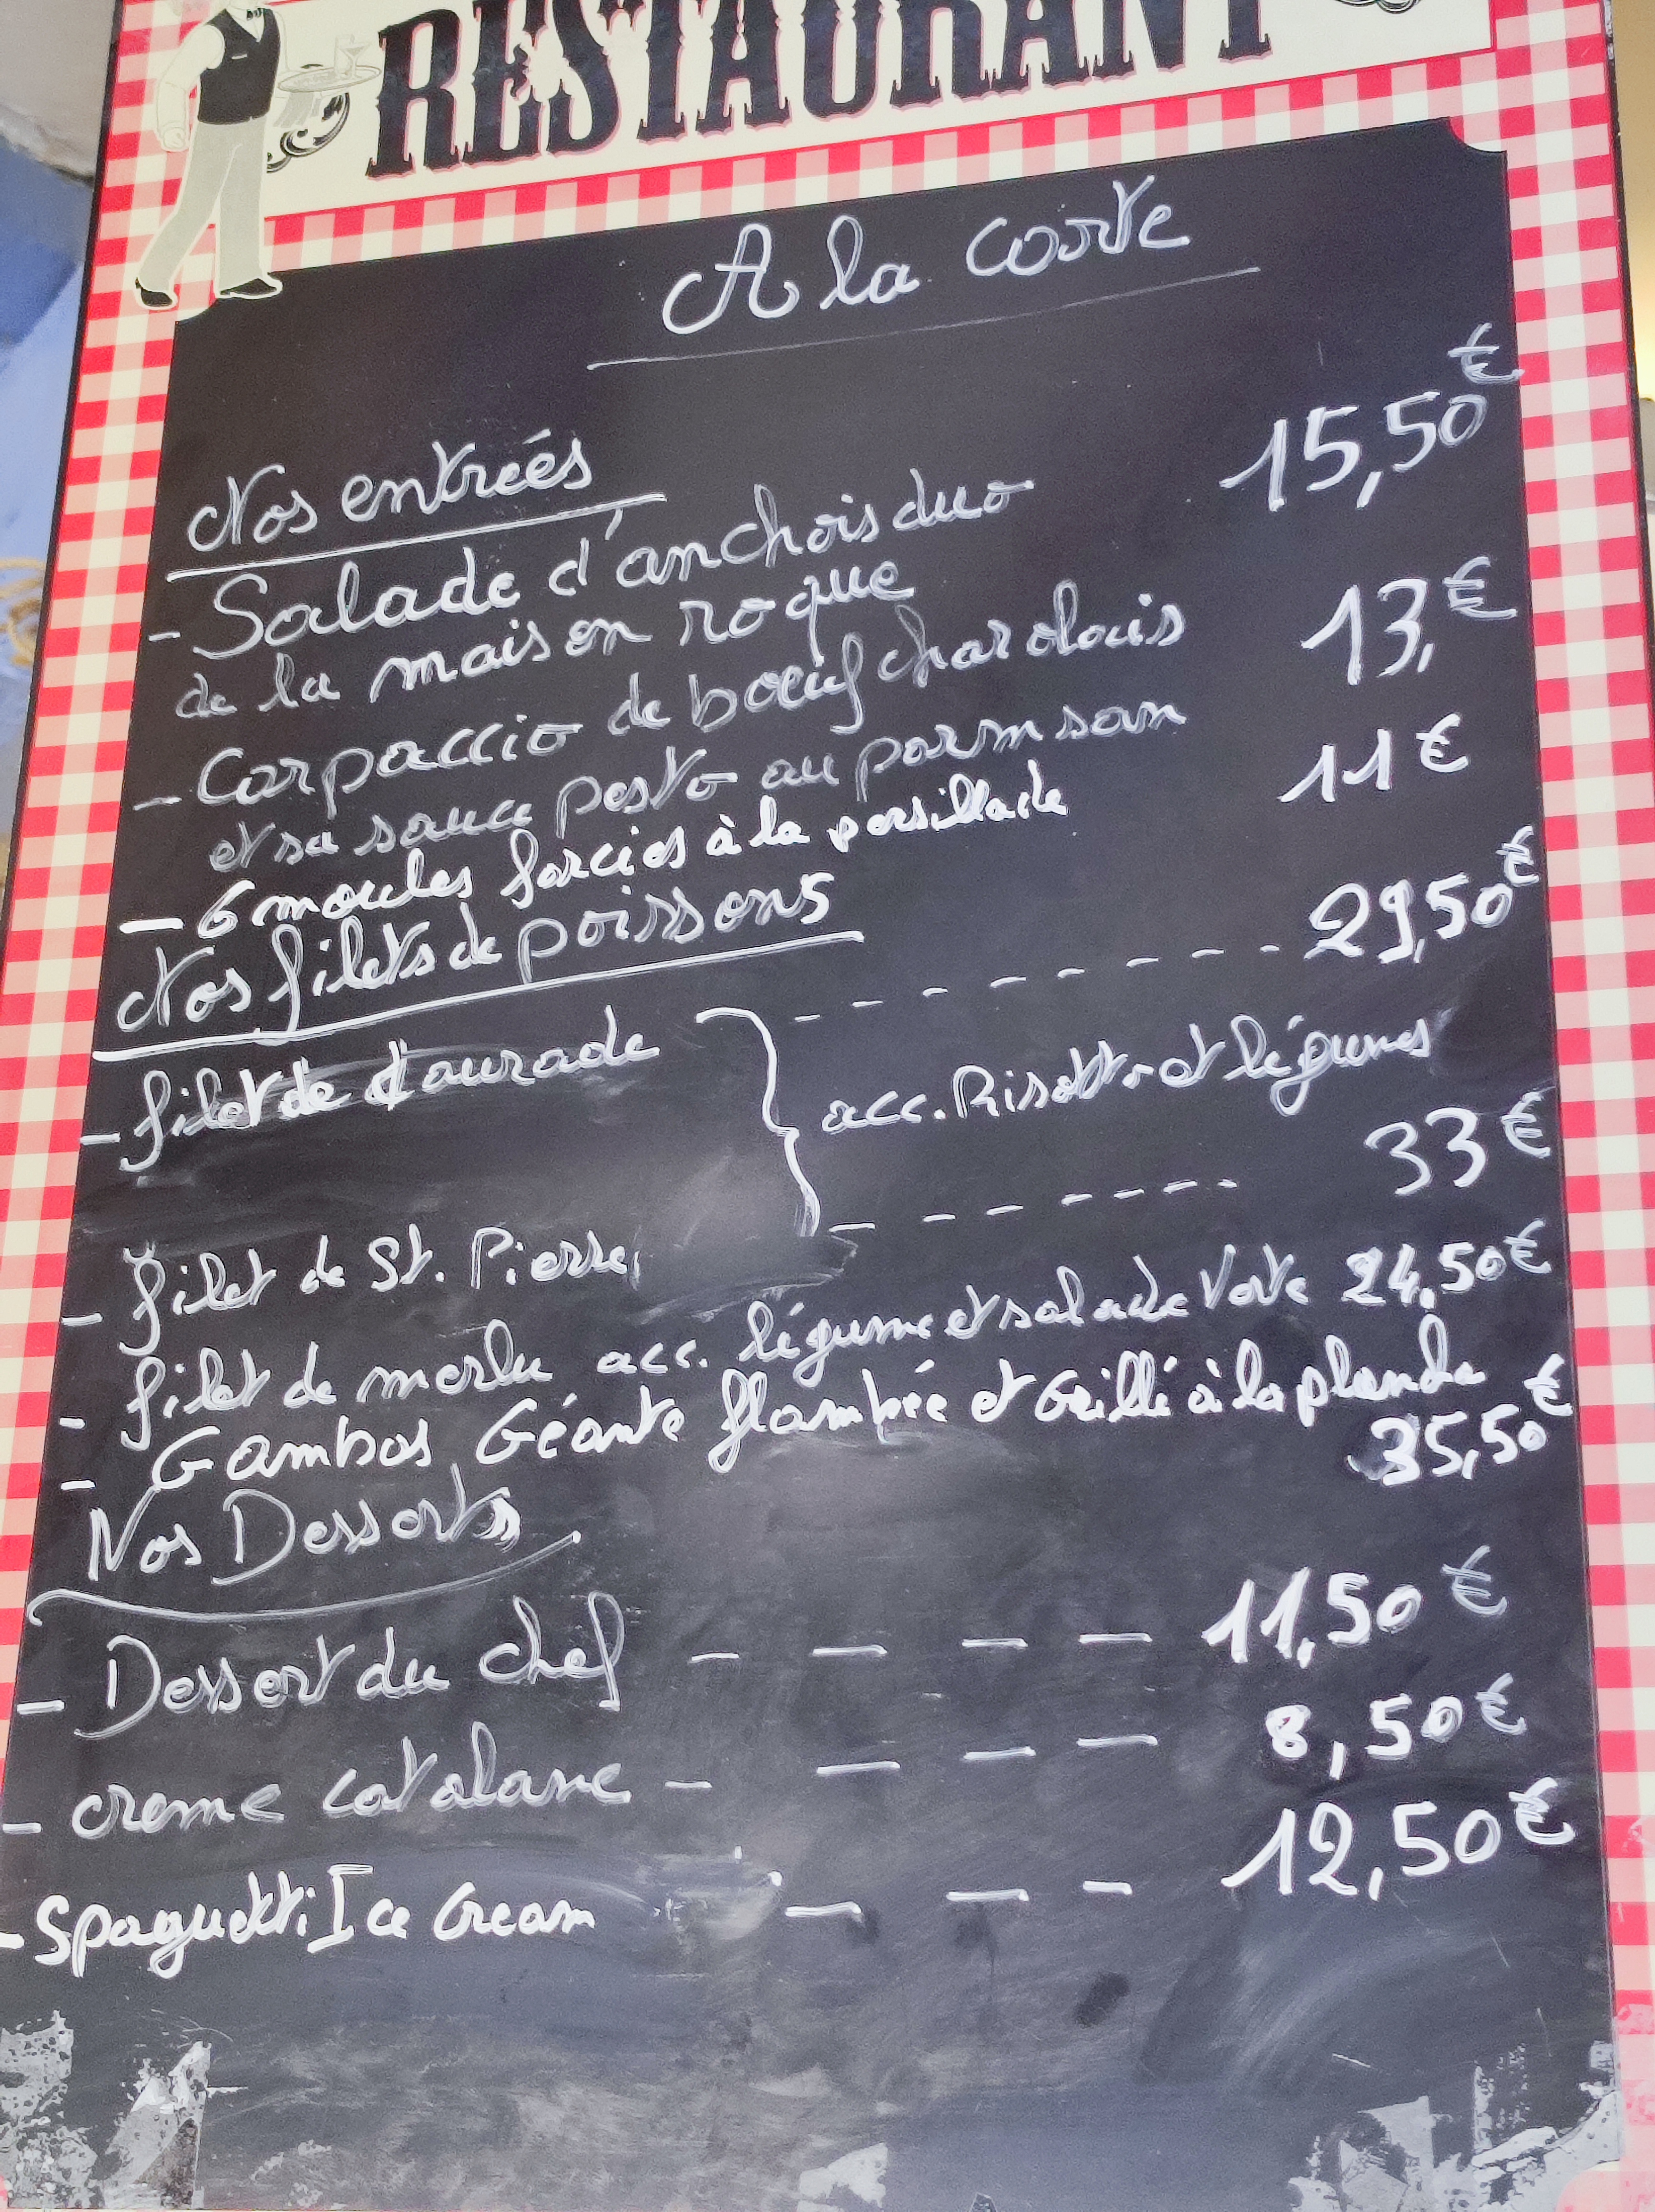 RESTAURANT
A la carte
Nos entrées
15,50€
- Salade d'anchois duo
de la maison roque
- Carpaccio de bœuf charolais 13,€
et sa sauce pesto au parmsan
- 6 moules farcies à la persillade 11€
Nos filets de poissons
- filet de daurade - - - - - - - - 29,50€
acc. Risotto et légumes
- filet de St. Pierre - - - - - - - 33€
- filet de merlu acc. légume et salade Verte 24,50€
- Gambas Géante flambée et Grillé à la plancha
35,50€
Nos Desserts
- Dessert du chef - - - - 11,50€
- creme catalane - - - - 8,50€
- Spaguetti Ice Cream - - - 12,50€